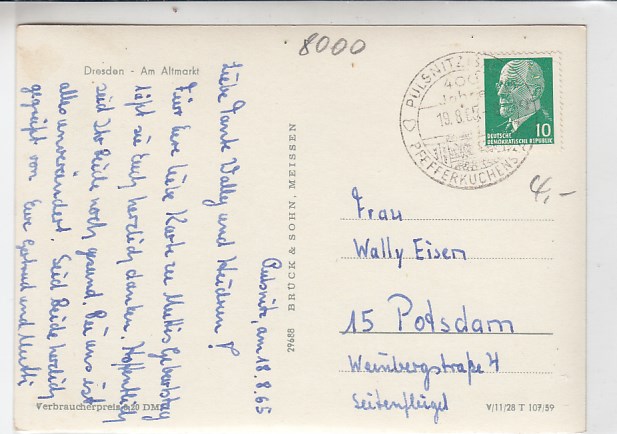 8000
Dresden - Am Altmarkt
Pulsnitz, am 18.8.65
Liebe Tante Wally und Heidrun!
Für Eure liebe Karte zu Muttis Geburtstag
läßt sie Euch herzlich danken. Hoffentlich
seid Ihr beide noch gesund. Bei uns ist
alles unverändert. Seid beide herzlich
gegrüßt von Eure Gertrud und Mutti
Verbraucherpreis 0,20 DM
29688 BRÜCK & SOHN, MEISSEN
PULSNITZ
400
Jahre
19.8.65
PFEFFERKUCHEN
10
DEUTSCHE
DEMOKRATISCHE REPUBLIK
4,-
Frau
Wally Eisen
15 Potsdam
Weinbergstraße 4
Seitenflügel
V/11/28 T 107/59